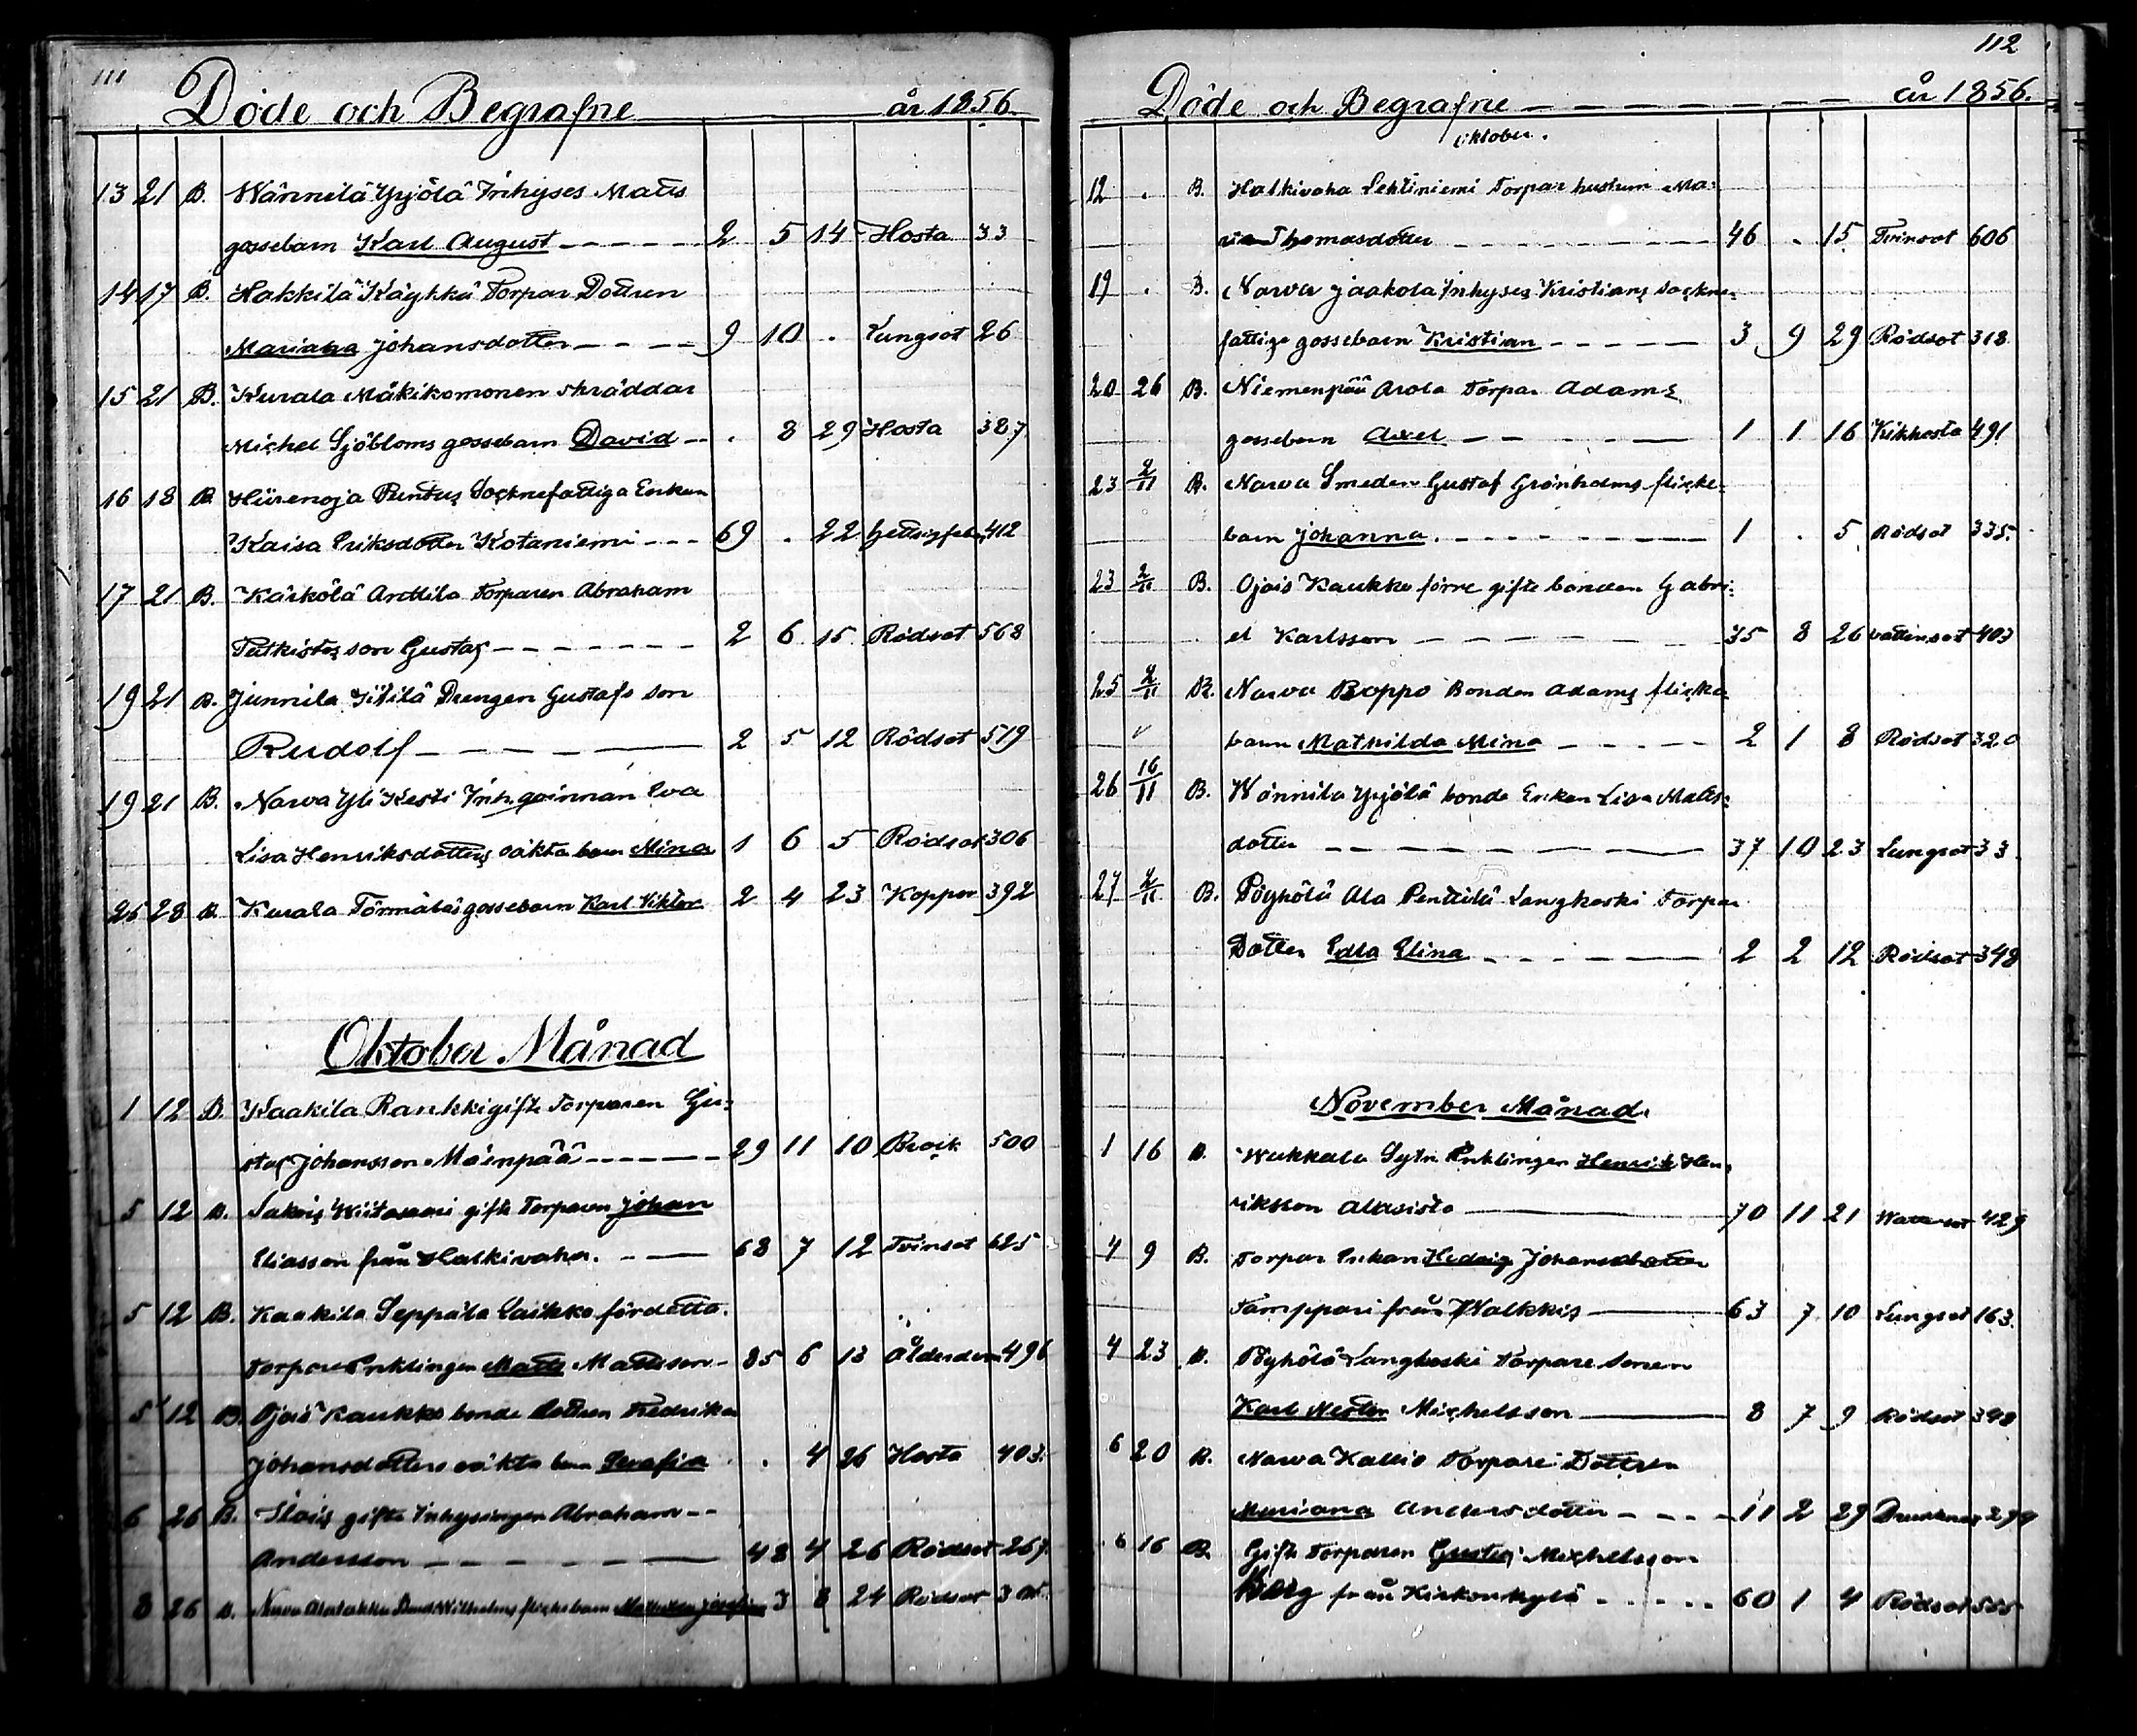 111
Döde och Begrafne år 1856.
13 21 B. Wännilä Yrjölä Inhyses Matts
gossebarn Karl August 2 5 14 Hosta 33
14 17 B. Hakkilä Käyhkä Torpar Dottren
Mariana Johansdotter 9 10 . Lungsot 26
15 21 B. Kurala Mäkikomonen skräddar
Michel Sjöbloms gossebarn David . 8 29 Hosta 387
16 18 B. Hiirenoja Runtus Socknefattiga Enkan
Kaisa Eriksdotter Kotaniemi 69 . 22 412
17 21 B. Kärkölä Anttila Torparen Abraham
son Gustaf 2 6 15 Rödsot 568
19 21 B. Junnila Drengen Gustafs son
Rudolf 2 5 12 Rödsot 519
19 21 B. Narva Yli Kesti Inh. qvinnan Eva
Lisa Henriksdotters oäkta barn Mina 1 6 5 Rödsot 306
25 28 B. Kurala Törmälä gossebarn Karl Viktor 2 4 23 Koppor 392
Oktober Månad
1 12 B. Kaakila Raukki gifte Torparen Gu-
staf Johansson Mäenpää 29 11 10 500
5 12 B. Sakois Wiitasaari gifte Torparen Johan
Eliasson från Halkivaha. 68 7 12 Tvinsot 625
5 12 B. Kaakila Seppälä Laikko fördetta
Torpare Enklingen Matts Mattsson 85 6 13 Ålderdom 496
5 12 B. Ojois Kaukko bonde dottren Fredrika
Johansdotters oäkta barn Serafia . 4 26 Hosta 403.
6 26 B. gifte Inhysingen Abraham
Andersson 48 4 26 Rödsot 267
8 26 B. Narva Wilhelms flickebarn 3 8 24 Rödsot
112
Döde och Begrafne år 1856.
Oktober.
12 . B. Halkivaha Lehtiniemi Torpar hustrun Ma-
ria Thomasdotter 46 . 15 Tvinsot 606
19 . B. Narva Jaakola Inhyses Kristians sockne-
fattige gossebarn Kristian 3 9 29 Rödsot 318
20 26 B. Niemenpää Arola Torpar Adams
gossebarn Axel 1 1 16 Kikhosta 491
23 2/11 B. Narva Smeden Gustaf Grönholms flicke-
barn Johanna. 1 . 5 Rödsot 335.
23 2/11 B. Ojois Kaukko förre gifte bonden Gabri-
el Karlsson 35 8 26 vattensot 403
25 2/11 B. Narva Roppo Bonden Adams flicka
barn Mathilda Mina 2 1 8 Rödsot 320
26 16/11 B. Wännila Yrjölä bonde Enkan Lisa Matts-
dotter 37 10 23 Lungsot 33
27 2/11 B. Pöyhölä Ala Penttilä Langkoski Torpar
Dotter Edla Elina 2 2 12 Rödsot 348
November Månad.
1 16 B. Wakkala Sytn. Enklingen Henrik Hen-
riksson Alasisto 70 11 21 Wattusot 429
4 9 B. Torpar Enkan Hedvig Johansdotter
Tamppari från Walkkis 63 7 10 Lungsot 163.
4 23 B. Pöyhölä Langkoski Torpare Sonen
Karl Nestor Michelsson 8 7 9 Rödsot 348
6 20 B. Narva Kallio Torpare Dottren
Mariana Andersdotter 11 2 29
6 16 B. Gifte Torparen Gustaf Michelsson
Berg från Kirkonkylä 60 1 4 Rödsot 555